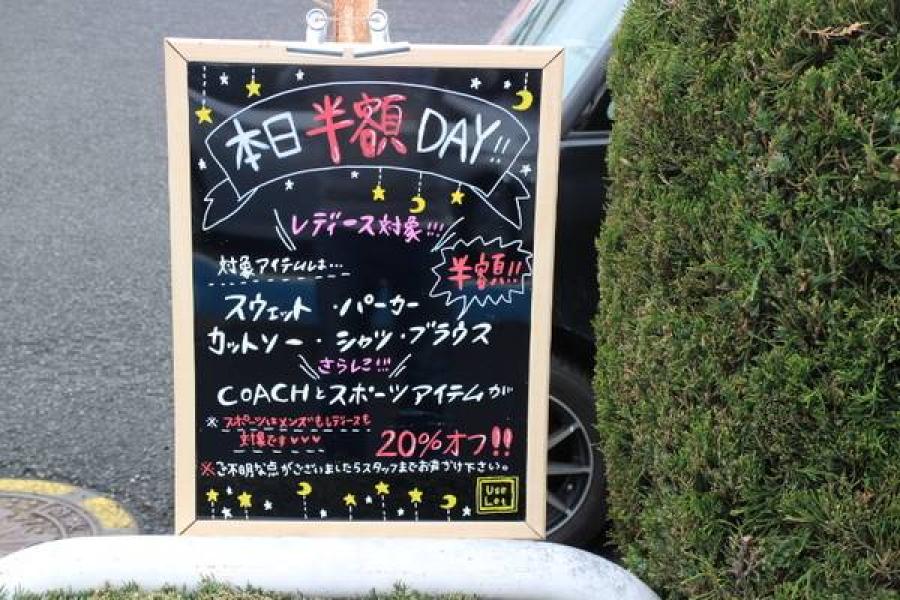 本日半額DAY!!
レディース対象!!!
対象アイテムは…
半額!!
スウェット ・パーカー
カットソー・シャツ・ブラウス
さらに!!!
COACHとスポーツアイテムが
※スポーツはメンズもレディースも
対象です♥♥♥
20%オフ!!
※ご不明な点がございましたらスタッフまでお声がけ下さい。
Use
Let